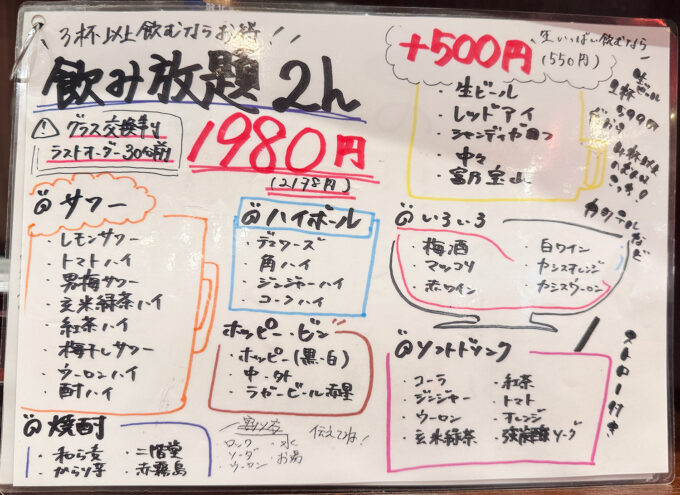 3杯以上飲むならお得!
飲み放題 2h
グラス交換制
ラストオーダー30分前
1980円
(2178円)
+500円
生いっぱい飲むなら
(550円)
・生ビール
・レッドアイ
・シャンディガフ
・中々
・富乃宝山
生ビール
1杯
@サワー
・レモンサワー
・トマトハイ
・男梅サワー
・玄米緑茶ハイ
・紅茶ハイ
・梅干しサワー
・ウーロンハイ
・酎ハイ
@ハイボール
・デュワーズ
・角ハイ
・ジンジャーハイ
・コークハイ
ホッピー・ビン
・ホッピー(黒・白)
・中・外
・ラガービール赤星
@いろいろ
・梅酒 ・白ワイン
・マッコリ ・カシスオレンジ
・赤ワイン ・カシスウーロン
@ソフトドリンク
・コーラ ・紅茶
・ジンジャー ・トマト
・ウーロン ・オレンジ
・玄米緑茶 ・強炭酸ソーダ
ストロー付き
@焼酎
・和ら麦 ・二階堂
・からり芋 ・赤霧島
割り方 伝えてね!
・ロック ・水
・ソーダ ・お湯
・ウーロン